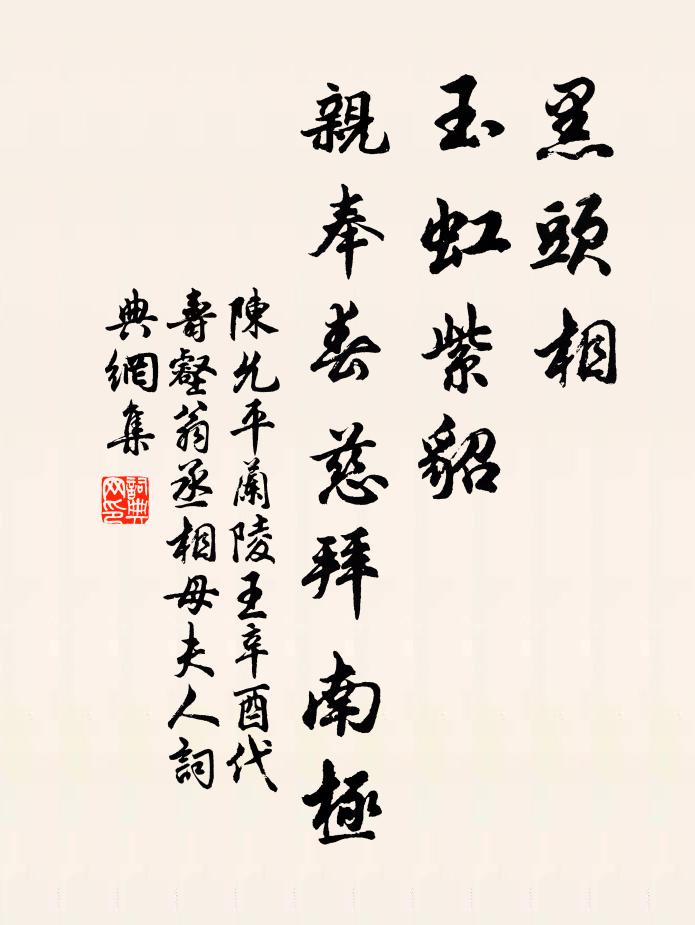 黑頭相
玉虹紫貂
親奉春慈拜南極
陳允平蘭陵王辛酉代
壽壑翁丞相母夫人詞
典網集
詞典
网印